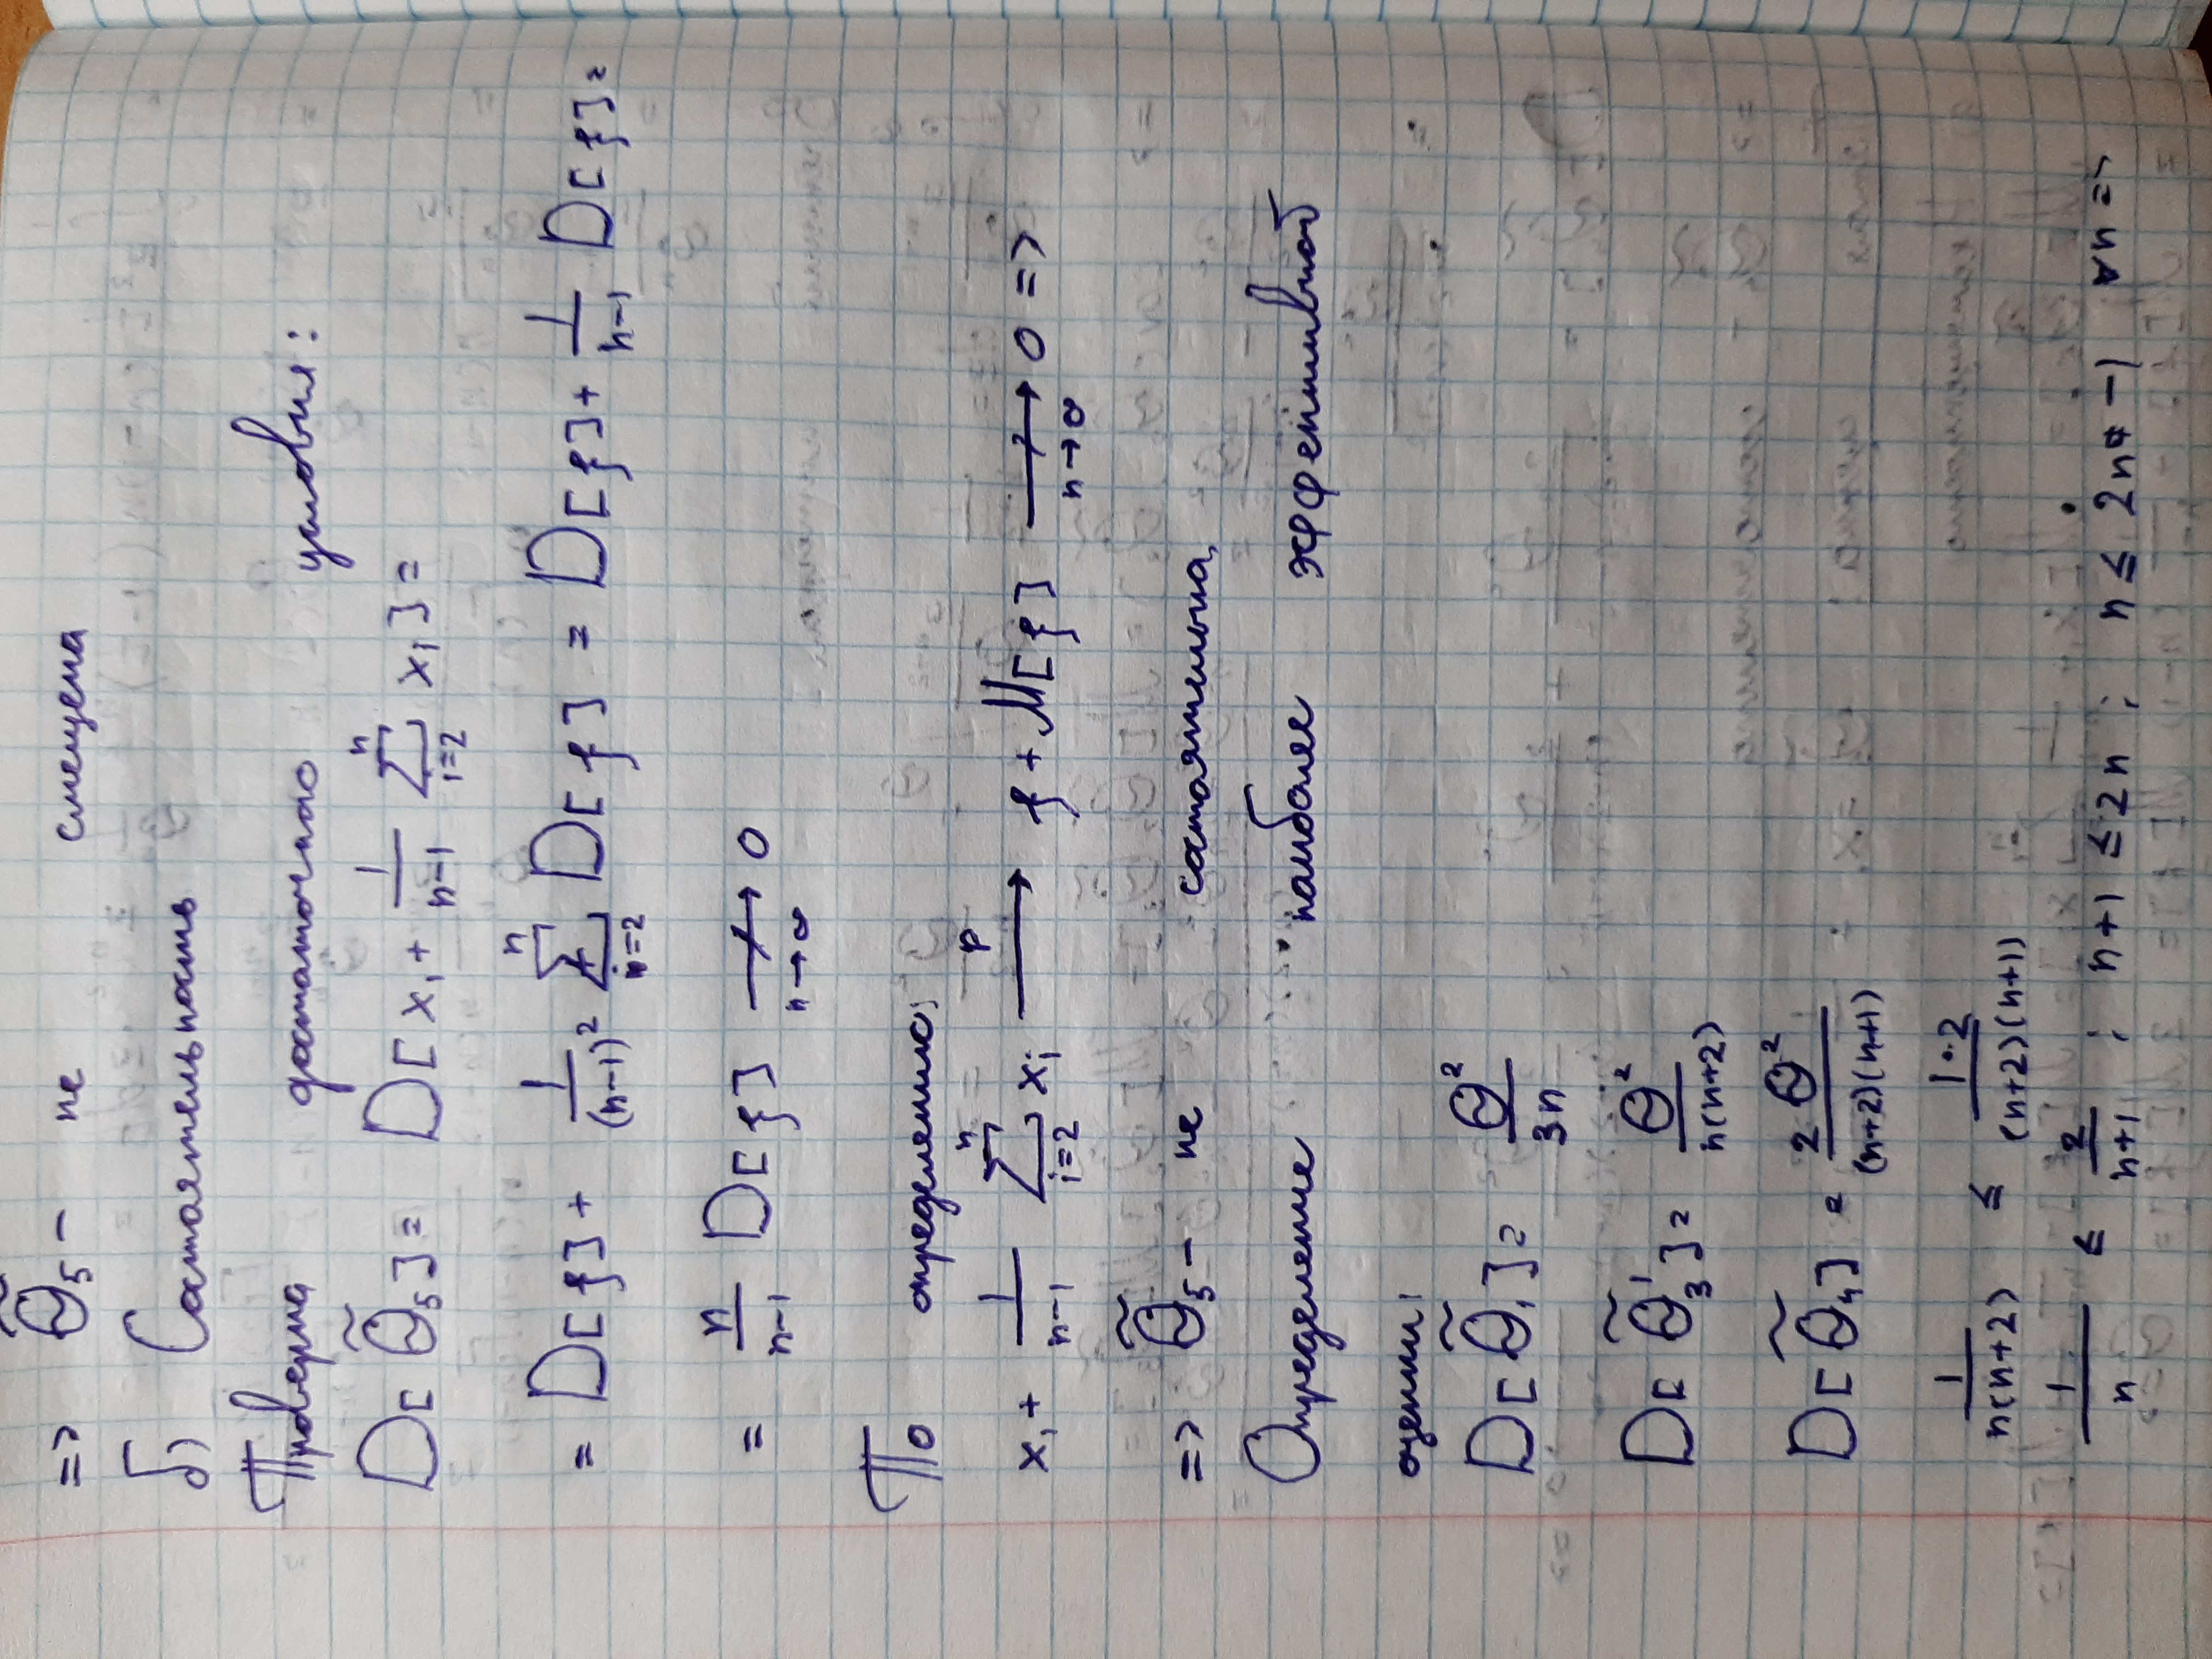 => θ̃₅ - не смещена
б) Состоятельность
Проверка достаточно условия:
D[θ̃₅] = D[x₁ + 1/(n-1) Σ_{i=2}^{n} xᵢ] =
= D[ξ] + 1/(n-1)² Σ_{i=2}^{n} D[ξ] = D[ξ] + 1/(n-1) D[ξ] =
= n/(n-1) D[ξ] ↛_{n→∞} 0
По определению:
x₁ + 1/(n-1) Σ_{i=2}^{n} xᵢ →^{P} ξ + M[ξ] ↛_{n→∞} 0 =>
=> θ̃₅ - не состоятельна,
Определение наиболее эффективной
оценки:
D[θ̃₁] = θ²/(3n)
D[θ̃₃'] = θ²/(n(n+2))
D[θ̃₄] = 2θ²/((n+2)(n+1))
1/(n(n+2)) ≤ (1·2)/((n+2)(n+1))
1/n ≤ 2/(n+1) ; n+1 ≤ 2n ; n ≤ 2n -1 ∀n =>